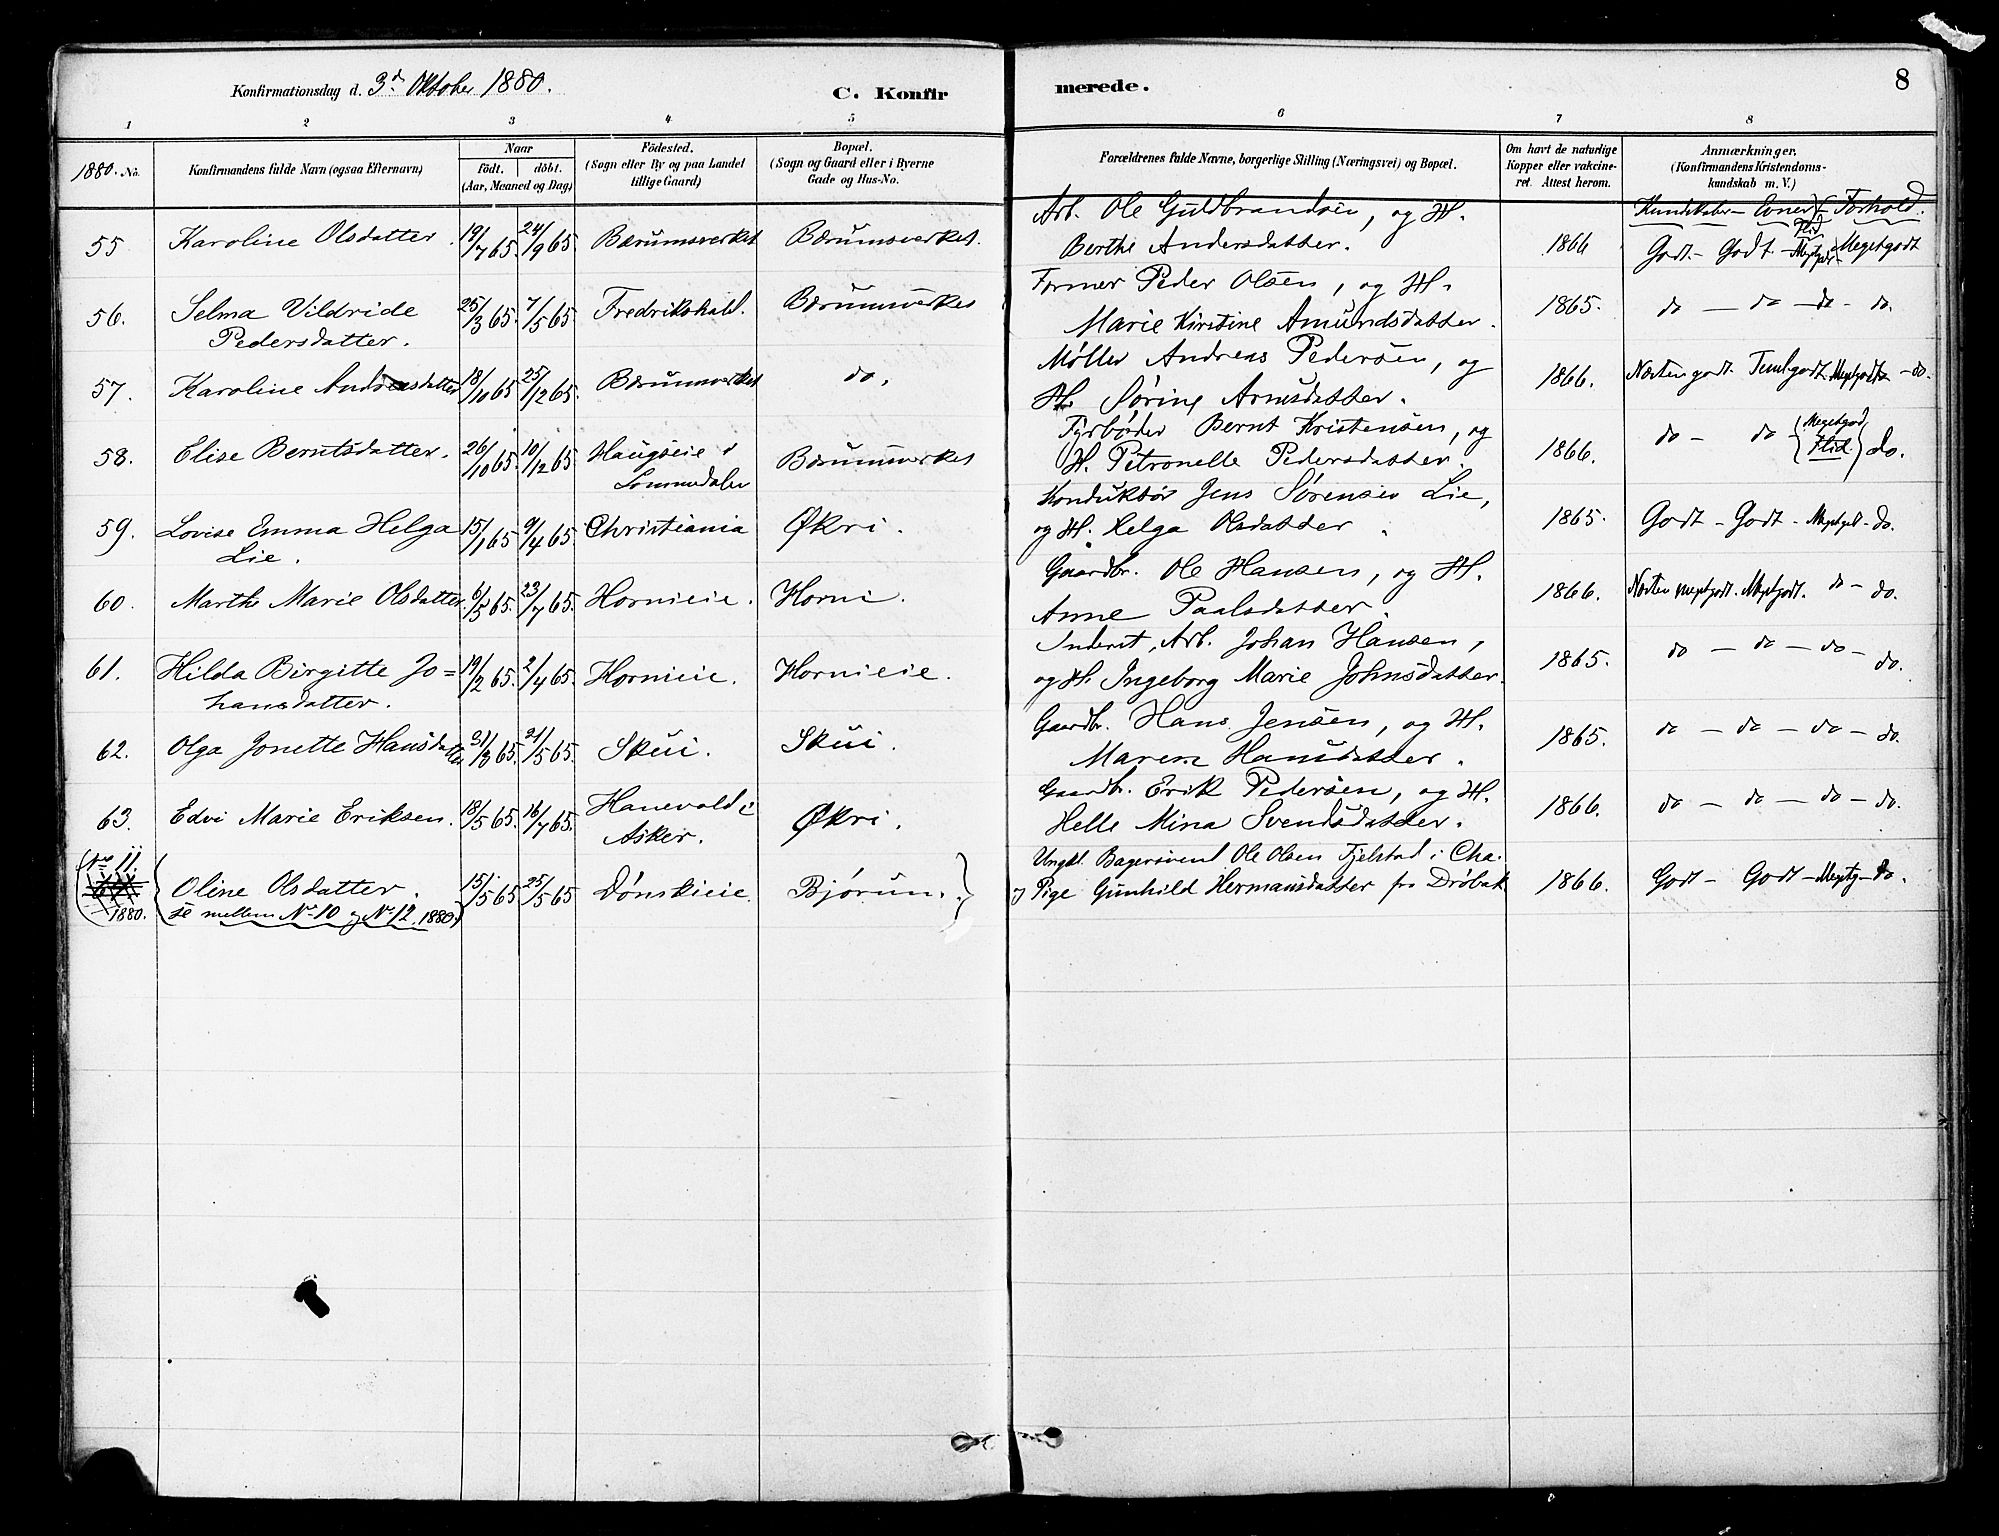 Konfirmationsdag d. 3d Oktober 1880.
C. Konfirmerede.
8
1 2 3 4 5 6 7 8
1880. No.
Konfirmandens fulde Navn (ogsaa Efternavn)
Naar
Födt. döbt.
(Aar, Meaned og Dag)
Födested.
(Sogn eller By og paa Landet
tillige Gaard)
Bopæl.
(Sogn og Gaard eller i Byerne
Gade og Hus-No.
Forældrenes fulde Navne, borgerlige Stilling (Næringsvei) og Bopæl.
Om havt de naturlige
Kopper eller vakcine-
ret. Attest herom.
Anmærkninger.
(Konfirmandens Kristendoms-
kundskab m. V.)
Kundskaber - Evner - Flid - Forhold.
55 Karoline Olsdatter. 19/7 65. 24/9 65 Bærumsverket Bærumsverket. Arb. Ole Guldbrandsen, og H.
Berthe Andersdatter. 1866 Godt. - Godt. - Megetgodt - Megetgodt
56. Selma Vildride
Pedersdatter. 25/3 65. 7/5 65 Fredrikshald. Bærumsverket Former Peder Olsen, og H.
Marie Kirstine Amundsdatter. 1865. do - do - do - do.
57. Karoline Andreasdatter 18/10 65 25/12 65. Bærumsverket do. Møller Andreas Pedersen, og
H. Sørine Arnesdatter. 1866. Næsten godt. Temlgodt. Megetgodt - do.
58. Elise Berntsdatter. 26/10 65. 10/12 65 Haugseie i
Lommedalen Bærumsverket Fyrbøder Bernt Kristensen, og
H. Petronelle Pedersdatter. 1866. do - do - {Megetgod Flid.} do.
59. Lovise Emma Helga
Lie. 15/1 65 9/4 65. Christiania Økri. Konduktør Jens Sørensen Lie,
og H. Helga Olsdatter. 1865. Godt - Godt - Megetgdt - do.
60. Marthe Marie Olsdatter. 6/5 65. 23/7 65. Hornieie. Horni. Gaardbr. Ole Hansen, og H.
Anne Paalsdatter. 1866. Næsten megetgodt. Megetgodt. do - do.
61. Hilda Birgitte Jo=
hansdatter. 19/2 65. 2/4 65. Hornieie. Hornieie. Inderst, Arb. Johan Hansen,
og H. Ingeborg Marie Johnsdatter. 1865. do - do - do - do.
62. Olga Jonette Hansdatter 31/3 65. 21/5 65. Skui. Skui. Gaardbr. Hans Jensen, og H.
Maren Hansdatter. 1865. do - do - do - do.
63. Edvi Marie Eriksen. 18/5 65. 16/7 65. Hanevold i
Asker. Økri. Gaardbr. Erik Pedersen, og H.
Helle Mina Svendsdatter. 1866. do - do - do - do.
(No 11.
1880. Oline Olsdatter. 15/5 65 25/5 65 Dønskieie. Bjørum. Ungkl. Bagersvend Ole Olsen Fjelstad i Cha.
se mellem No 10 og No 12. 1880) og Pige Gunhild Hermansdatter fra Drøbak 1866. Godt - Godt - Megetg - do.